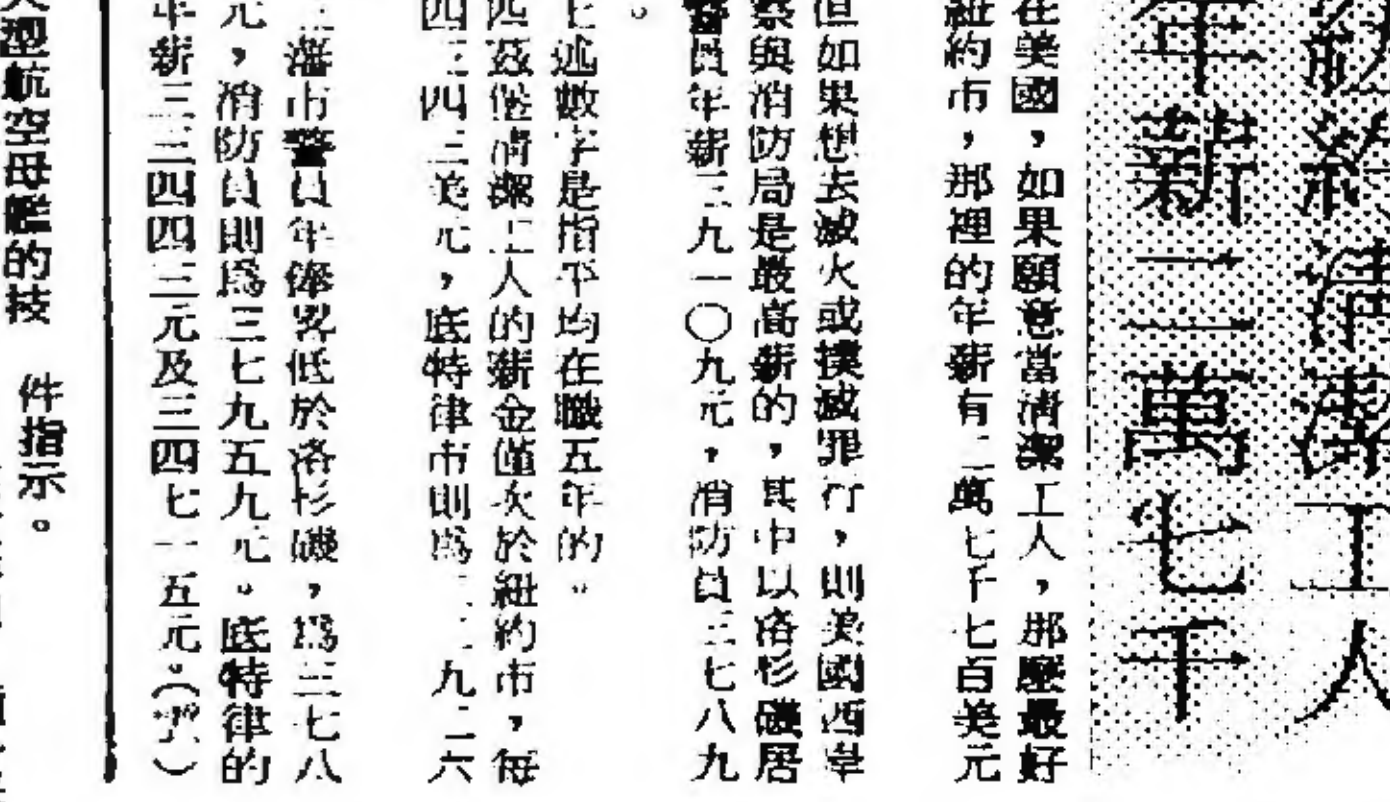 紐約清潔工人
年薪二萬七千
在美國，如果願意當清潔工人，那麼最好
紐約市，那裡的年薪有二萬七千七百美元
但如果想去滅火或撲滅罪行，則美國西岸
察與消防局是最高薪的，其中以洛杉磯居
警員年薪三九一〇九元，消防員三七八九
。
上述數字是指平均在職五年的。
匹茲堡清潔工人的薪金僅次於紐約市，每
四三美元，底特律市則爲
三藩市警員年俸畧低於洛杉磯，爲三七八
元，消防員則爲三七九五九元。底特律的
年薪三三四四三元及三四七一五元。
大型航空母艦的技
件指示。